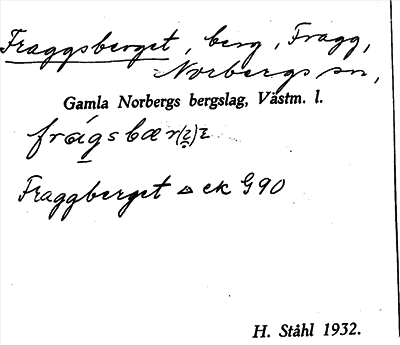 Fraggsberget, berg, Fragg,
Norbergs sn,
Gamla Norbergs bergslag, Västm. l.
frágsbær(ʐ)ʐ
Fraggberget △ ek G90
H. Ståhl 1932.